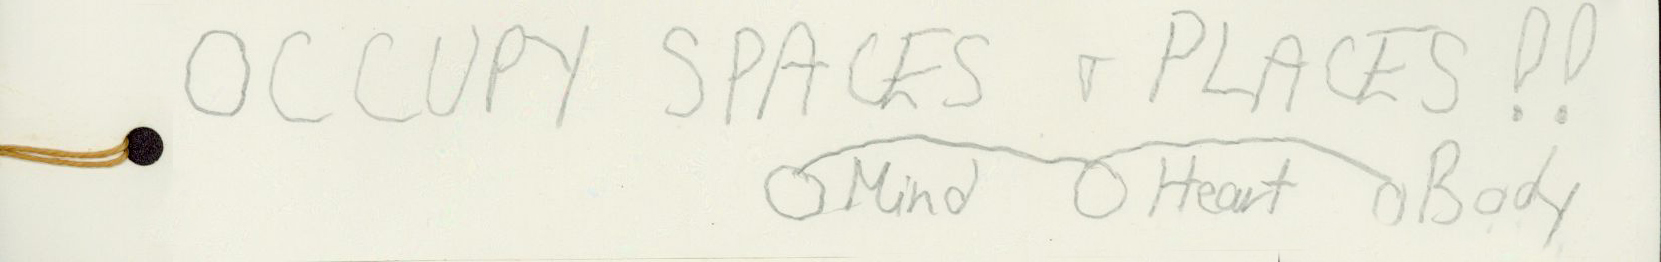 OCCUPY SPACES + PLACES!!
Mind Heart Body